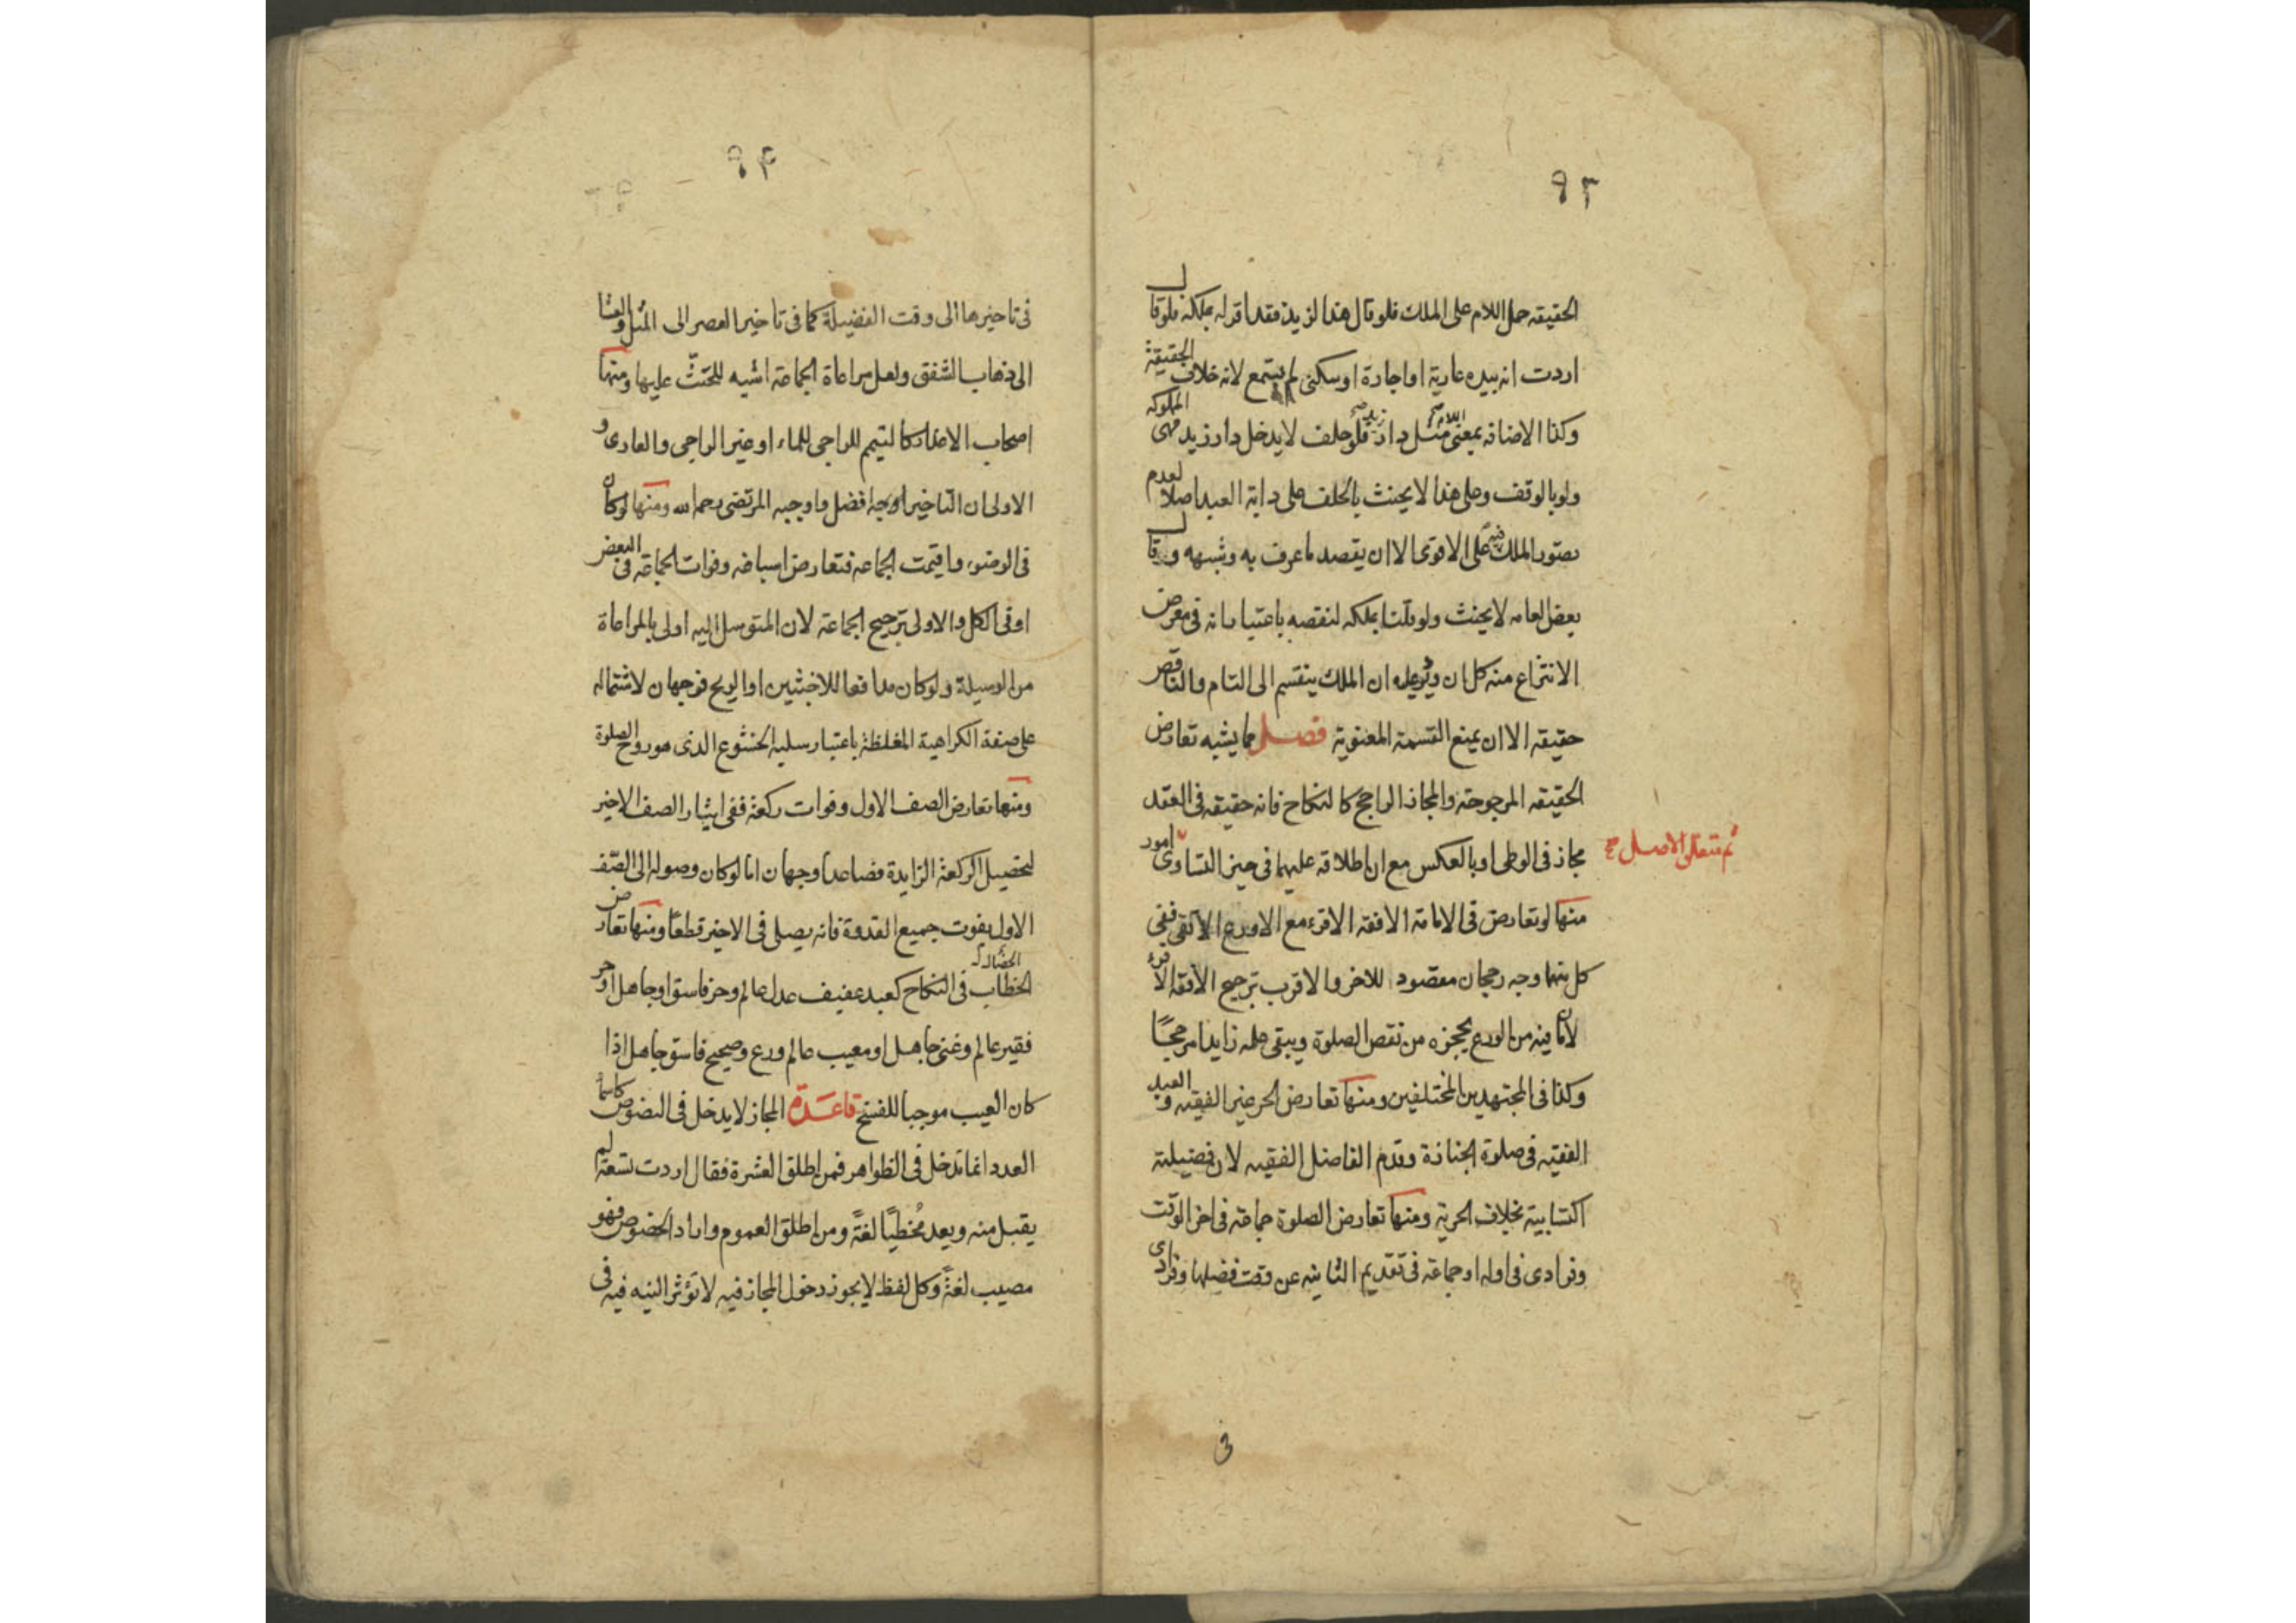 ٩٣
الحقيقه حمل اللام على الملك فلو قال هذا لزيد فقد اقر له بملكه فلو قال
اردت انه بيده عارية او اجارة او سكنى لم يستمع لانه خلاف الحقيقة
وكذا الاضافه بمعنى اللام مثل دار زيد فلو حلف لا يدخل دار زيد فهى المملوكه
ولو بالوقف وعلى هذا لا يحنث بالحلف على دابة العبد اصلا لعدم
تصور الملك فيه على الاقوى الا ان يقصد ما عرف به وشبهه وقال
بعض العامه لا يحنث ولو قلنا بملكه لنقصه باعتبار انه فى معرض
الانتزاع منه كل ان ويرد عليه ان الملك ينقسم الى التام والناقص
حقيقه الا ان يمنع القسمة المعنوية فصل مما يشبه تعارض
الحقيقه المرجوحة والمجاز الراجح كالنكاح فانه حقيقه فى العقد
مجاز فى الوطى او بالعكس مع ان اطلاقه عليهما فى حيز التساوى امور
ثم تنتقل الاصل صح
منها لو تعارض فى الامامة الافقه الاقرء مع الاورع الاتقى ففى
كل منهما وجه رجحان مقصود للاخر والاقرب ترجيح الافقه الاقرء
لان ما فيه من الورع يحجزه من نقص الصلوة ويبقى علمه زايدا مرجحًا
وكذا فى المجتهدين المختلفين ومنها تعارض الحر غير الفقيه والعبد
الفقيه فى صلوة الجنازة وقدم الفاضل الفقيه لان فضيلته
اكتسابية بخلاف الحرية ومنها تعارض الصلوة جماعة فى اخر الوقت
وفرادى فى اوله او جماعة فى تقديم الثانيه عن وقت فضلها وفرادى
فى
٩٤
فى تاخيرها الى وقت الفضيلة كما فى تاخير العصر الى المثل والعشا
الى ذهاب الشفق ولعل مراعاة الجماعة اشبه للحثّ عليها ومنها
اصحاب الاعذار كالتيمم للراجى للماء او غير الراجى والعارى و
الاولى ان التاخير للراجى افضل واوجبه المرتضى رحمه الله ومنها لو كان
فى الوضوء واقيمت الجماعه فتعارض اسباغه وفوات الجماعة فى البعض
او فى الكل والاولى ترجيح الجماعة لان المتوسل اليه اولى بالمراعاة
من الوسيلة ولو كان مدافعا للاخبثين او الريح فوجهان لاشتماله
على صفة الكراهية المغلظة باعتبار سلبه الخشوع الذى هو روح الصلوة
ومنها تعارض الصف الاول وفوات ركعة ففى ايثار الصف الاخير
لتحصيل الركعة الزايدة فصاعدا وجهان اما لو كان وصوله الى الصّف
الاول يفوت جميع القدوة فانه يصلى فى الاخير قطعًا ومنها تعارض
الخطاب فى النكاح كعبد عفيف عدل عالم وحر فاسق او جاهل او حر
فقير عالم وغنى جاهل او معيب عالم ورع وصحيح فاسق جاهل اذا
كان العيب موجبا للفسخ قاعدة المجاز لا يدخل فى النصوص كاسما
العدد انما تدخل فى الظواهر فمن اطلق العشرة فقال اردت تسعة لم
يقبل منه ويعد مُخطيًا لغةً ومن اطلق العموم واراد الخصوص فهو
مصيب لغةً وكل لفظ لا يجوز دخول المجاز فيه لا تؤثر النيه فيه فى